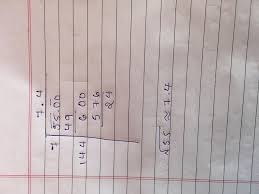 7.4
7 55.00
49
144 6.00
576
24
√55 ≈ 7.4